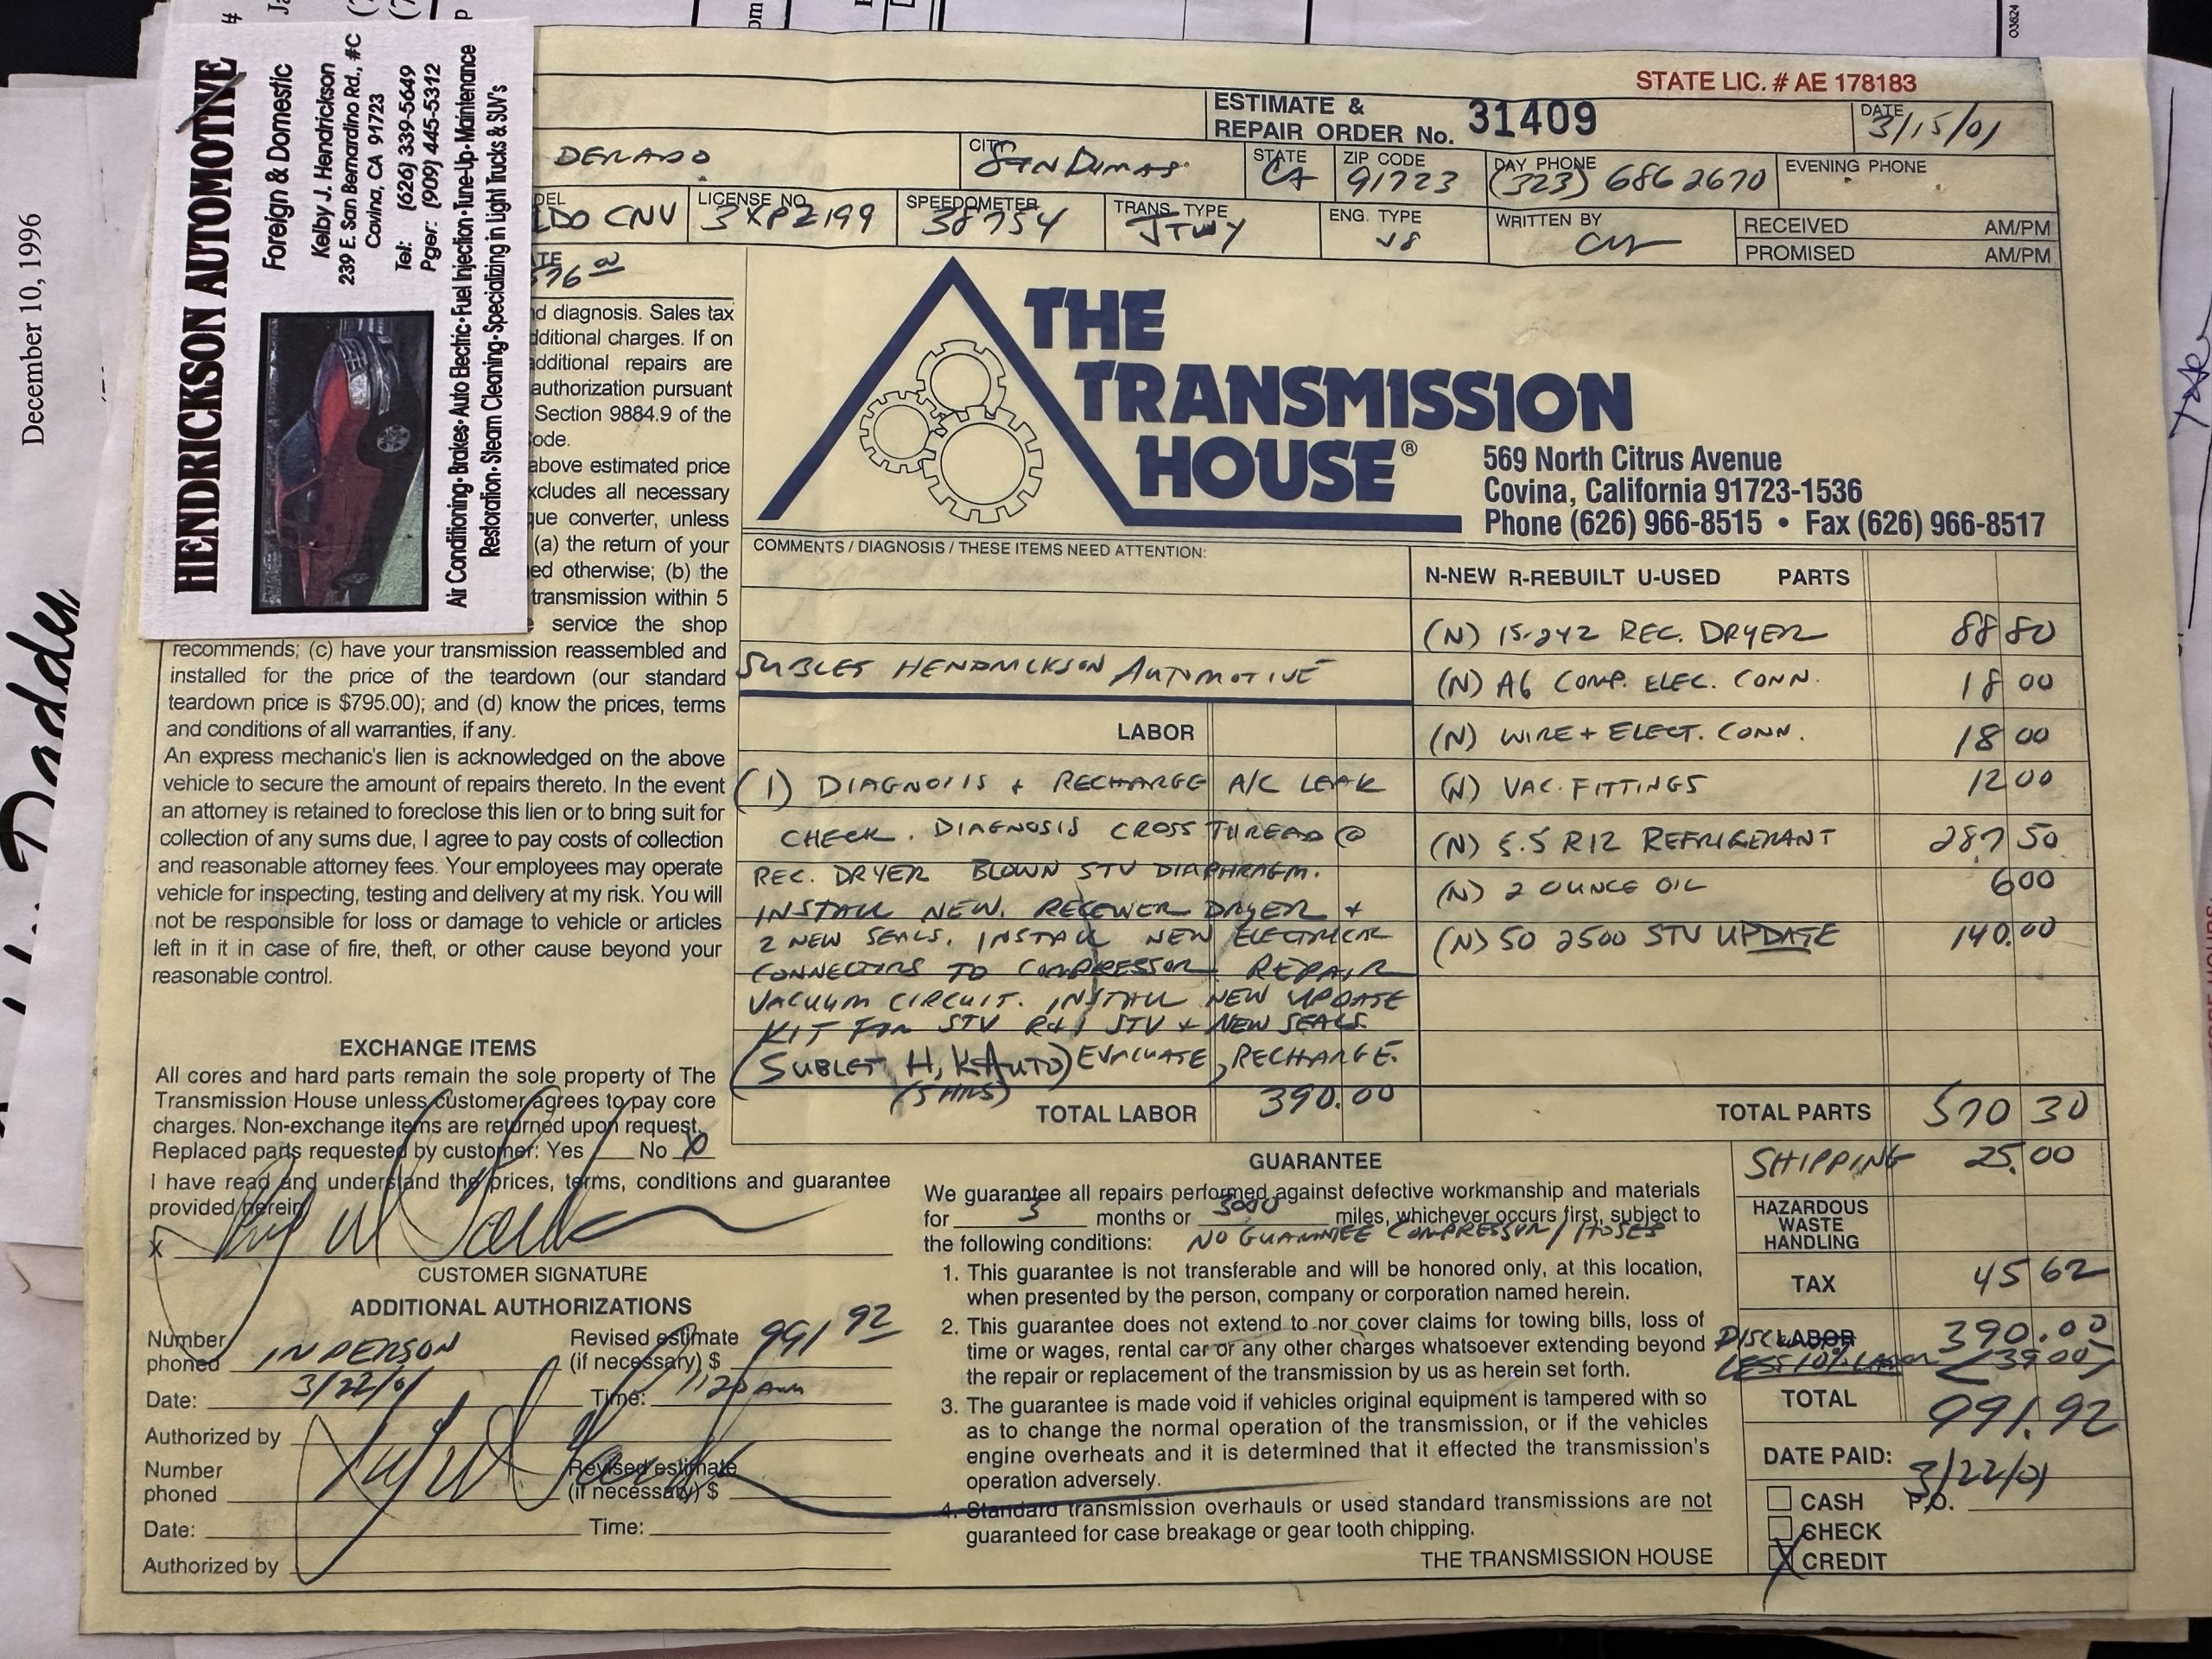 December 10, 1996
HENDRICKSON AUTOMOTIVE
Foreign & Domestic
Kelby J. Hendrickson
239 E. San Bernardino Rd., #C
Covina, CA 91723
Tel: (626) 339-5649
Pger: (909) 445-5312
Air Conditioning • Brakes • Auto Electric • Fuel Injection • Tune-Up • Maintenance
Restoration • Steam Cleaning • Specializing in Light Trucks & SUV's
03624
STATE LIC. # AE 178183
ESTIMATE &
REPAIR ORDER No. 31409
DATE 3/15/01
DERADO
CITY SAN DIMAS
STATE CA
ZIP CODE 91723
DAY PHONE (323) 686 2670
EVENING PHONE
DEL LDO CNV
LICENSE NO. 3XPZ199
SPEEDOMETER 38754
TRANS. TYPE
ENG. TYPE V8
WRITTEN BY
RECEIVED AM/PM
PROMISED AM/PM
THE
TRANSMISSION
HOUSE®
569 North Citrus Avenue
Covina, California 91723-1536
Phone (626) 966-8515 • Fax (626) 966-8517
nd diagnosis. Sales tax
dditional charges. If on
additional repairs are
authorization pursuant
Section 9884.9 of the
ode.
above estimated price
xcludes all necessary
que converter, unless
(a) the return of your
ed otherwise; (b) the
transmission within 5
service the shop
recommends; (c) have your transmission reassembled and
installed for the price of the teardown (our standard
teardown price is $795.00); and (d) know the prices, terms
and conditions of all warranties, if any.
An express mechanic's lien is acknowledged on the above
vehicle to secure the amount of repairs thereto. In the event
an attorney is retained to foreclose this lien or to bring suit for
collection of any sums due, I agree to pay costs of collection
and reasonable attorney fees. Your employees may operate
vehicle for inspecting, testing and delivery at my risk. You will
not be responsible for loss or damage to vehicle or articles
left in it in case of fire, theft, or other cause beyond your
reasonable control.
EXCHANGE ITEMS
All cores and hard parts remain the sole property of The
Transmission House unless customer agrees to pay core
charges. Non-exchange items are returned upon request.
Replaced parts requested by customer: Yes No X
I have read and understand the prices, terms, conditions and guarantee
provided herein.
X
CUSTOMER SIGNATURE
ADDITIONAL AUTHORIZATIONS
Number phoned IN PERSON Revised estimate (if necessary) $ 991 92
Date: 3/22/01 Time: 1120 am
Authorized by
Number phoned Revised estimate (if necessary) $
Date: Time:
Authorized by
COMMENTS / DIAGNOSIS / THESE ITEMS NEED ATTENTION:
SUBLET HENDRICKSON AUTOMOTIVE
LABOR
(1) DIAGNOSIS + RECHARGE A/C LEAK
CHECK. DIAGNOSIS CROSS THREAD @
REC. DRYER BLOWN STV DIAPHRAGM.
INSTALL NEW. RECEIVER DRYER +
2 NEW SEALS. INSTALL NEW ELECTRICAL
CONNECTORS TO COMPRESSOR REPAIR
VACUUM CIRCUIT. INSTALL NEW UPDATE
KIT FOR STV R+I STV + NEW SEALS.
(SUBLET H,K AUTO) EVACUATE, RECHARGE.
(5 HRS)
TOTAL LABOR 390.00
N-NEW R-REBUILT U-USED PARTS
(N) 15-242 REC. DRYER 88 80
(N) A6 COMP. ELEC. CONN. 18 00
(N) WIRE + ELECT. CONN. 18 00
(N) VAC. FITTINGS 12 00
(N) 5.5 R12 REFRIGERANT 287 50
(N) 2 OUNCE OIL 6 00
(N) 50 2500 STV UPDATE 140.00
TOTAL PARTS 570 30
SHIPPING 25.00
HAZARDOUS
WASTE
HANDLING
TAX 45 62
LABOR 390.00
DISC LESS 10% LABOR <39.00>
TOTAL 991.92
DATE PAID: 3/22/01
CASH P.O.
CHECK
X CREDIT
GUARANTEE
We guarantee all repairs performed against defective workmanship and materials
for 3 months or 3000 miles, whichever occurs first, subject to
the following conditions: NO GUARANTEE COMPRESSOR/HOSES
1. This guarantee is not transferable and will be honored only, at this location,
when presented by the person, company or corporation named herein.
2. This guarantee does not extend to nor cover claims for towing bills, loss of
time or wages, rental car or any other charges whatsoever extending beyond
the repair or replacement of the transmission by us as herein set forth.
3. The guarantee is made void if vehicles original equipment is tampered with so
as to change the normal operation of the transmission, or if the vehicles
engine overheats and it is determined that it effected the transmission's
operation adversely.
4. Standard transmission overhauls or used standard transmissions are not
guaranteed for case breakage or gear tooth chipping.
THE TRANSMISSION HOUSE